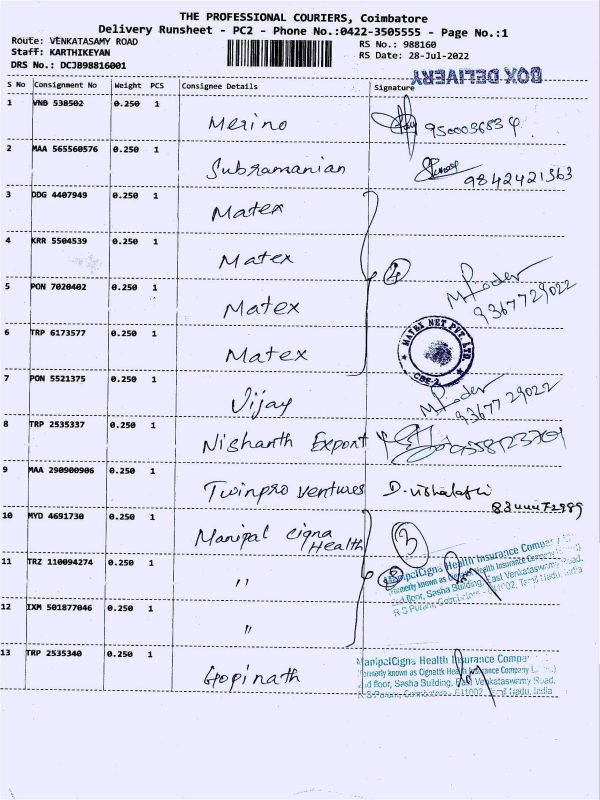 THE PROFESSIONAL COURIERS, Coimbatore
Delivery Runsheet - PC2 - Phone No.:0422-3505555 - Page No.:1
Route: VENKATASAMY ROAD
RS No.: 988160
Staff: KARTHIKEYAN
RS Date: 28-Jul-2022
DRS No.: DCJB98816001
BOX DELIVERY
S No Consignment No Weight PCS Consignee Details Signature
1 VNB 538502 0.250 1 Merino 9500036834
2 MAA 565560576 0.250 1 Subramanian 9842421363
3 DDG 4407949 0.250 1 Matex
4 KRR 5504539 0.250 1 Matex 4
5 PON 7020402 0.250 1 Matex 9367729022
6 TRP 6173577 0.250 1 Matex
MATEX NET PVT. LTD. CBE-2
7 PON 5521375 0.250 1 Vijay 9367729022
8 TRP 2535337 0.250 1 Nishanth Export
9 MAA 290900906 0.250 1 Twinpro ventures D. vishalatchi
10 MYD 4691730 0.250 1 Manipal cigna Health 3
11 TRZ 110094274 0.250 1 "
ManipalCigna Health Insurance Company
formerly known as Cignattk Health Insurance Company
2nd floor, Sasha Building, East Venkataswamy Road,
R S Puram, Coimbatore - 641002, Tamil Nadu, India
12 IXM 501877046 0.250 1 "
13 TRP 2535340 0.250 1 Gopinath
ManipalCigna Health Insurance Compa
formerly known as Cignattk Health Insurance Company
2nd floor, Sasha Building, East Venkataswamy Road,
R S Puram, Coimbatore - 641002, Tamil Nadu, India